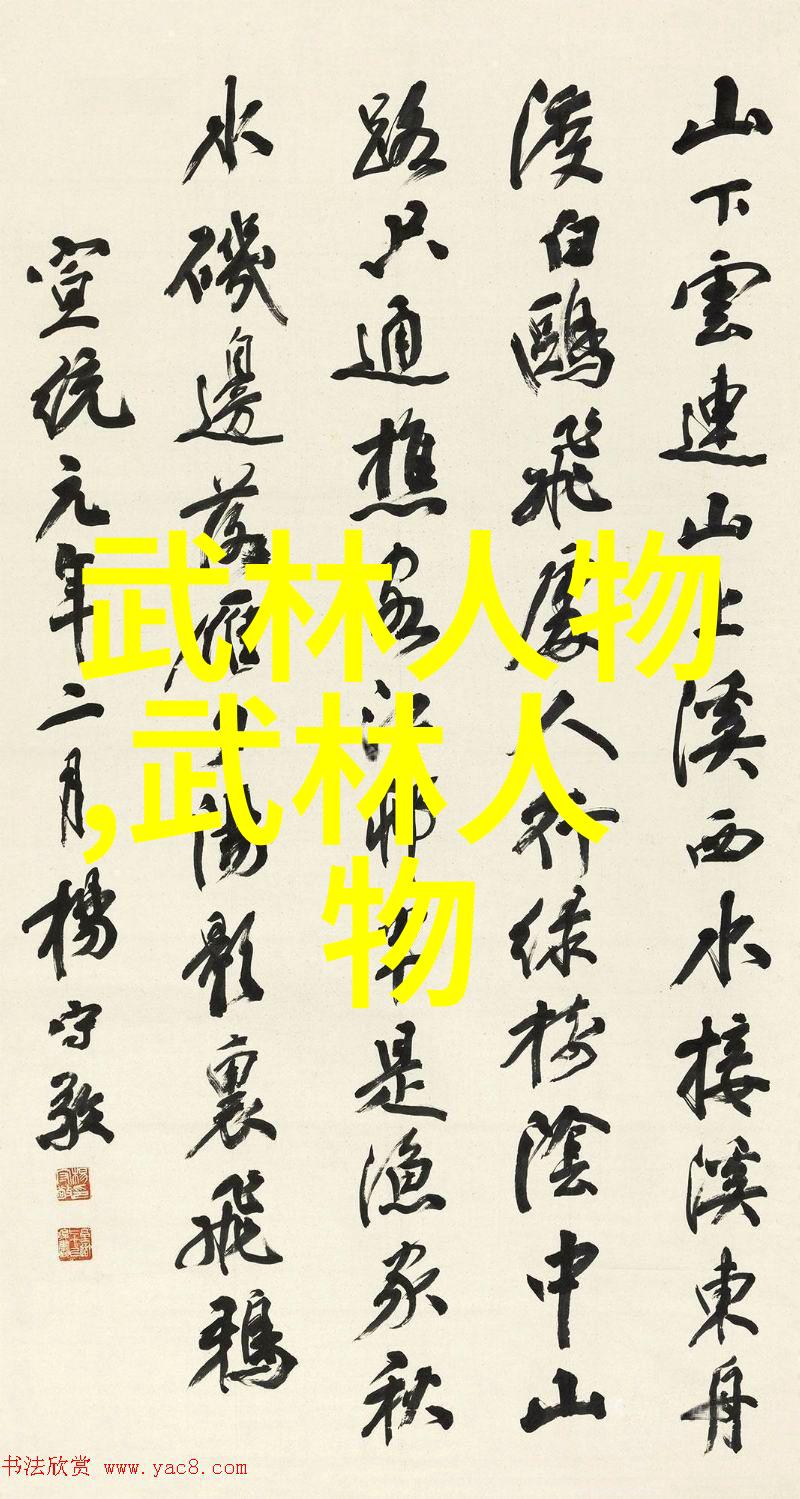 山下雲連山上溪西水接溪東舟
渡白鷗飛處人行綠樹陰中山
路只通樵客江村半是漁家秋
水磯邊落雁夕陽影裏飛鴉
宣統元年二月楊守敬
武林人物
,武林人
物
书法欣赏 www.yac8.com